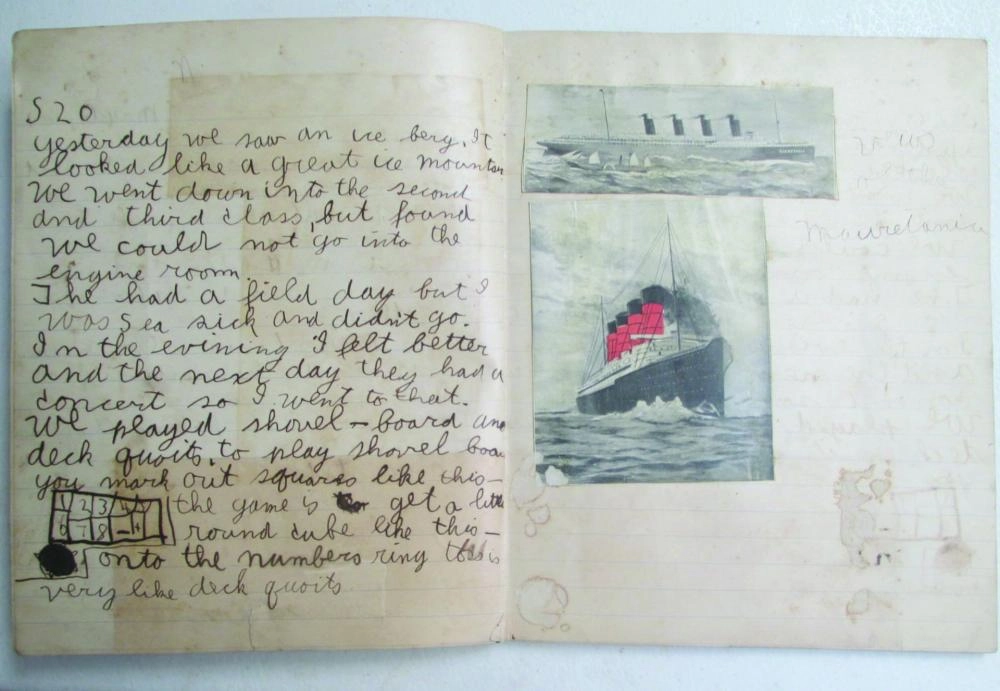 S 20
yesterday we saw an ice berg. It
looked like a great ice mountain
We went down into the second
and third class, but found
we could not go into the
engine room.
The had a field day but I
was sea sick and didn't go.
In the evening I felt better
and the next day they had a
concert so I went to that.
We played shovel-board and
deck quoits. to play shovel boa
you mark out squares like this-
1 2 3
6 7 8 - +
the game is get a little
round cube like this-
onto the numbers ring this is
very like deck quoits.
Mauretania